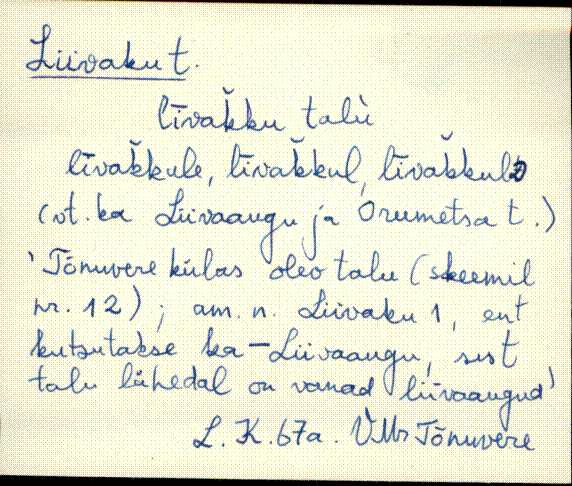 Liivaku t.
līvak̆ku talù
līvak̆kule, līvak̆kul, līvak̆kulᴅ
(vt. ka Liivaaugu ja Orumetsa t.)
'Tõnuvere külas olev talu (skeemil
nr. 12); am. n. Liivaku 1, ent
kutsutakse ka - Liivaaugu, sest
talu lähedal on vanad liivaaugud'
L. K. 67a. VMr Tõnuvere